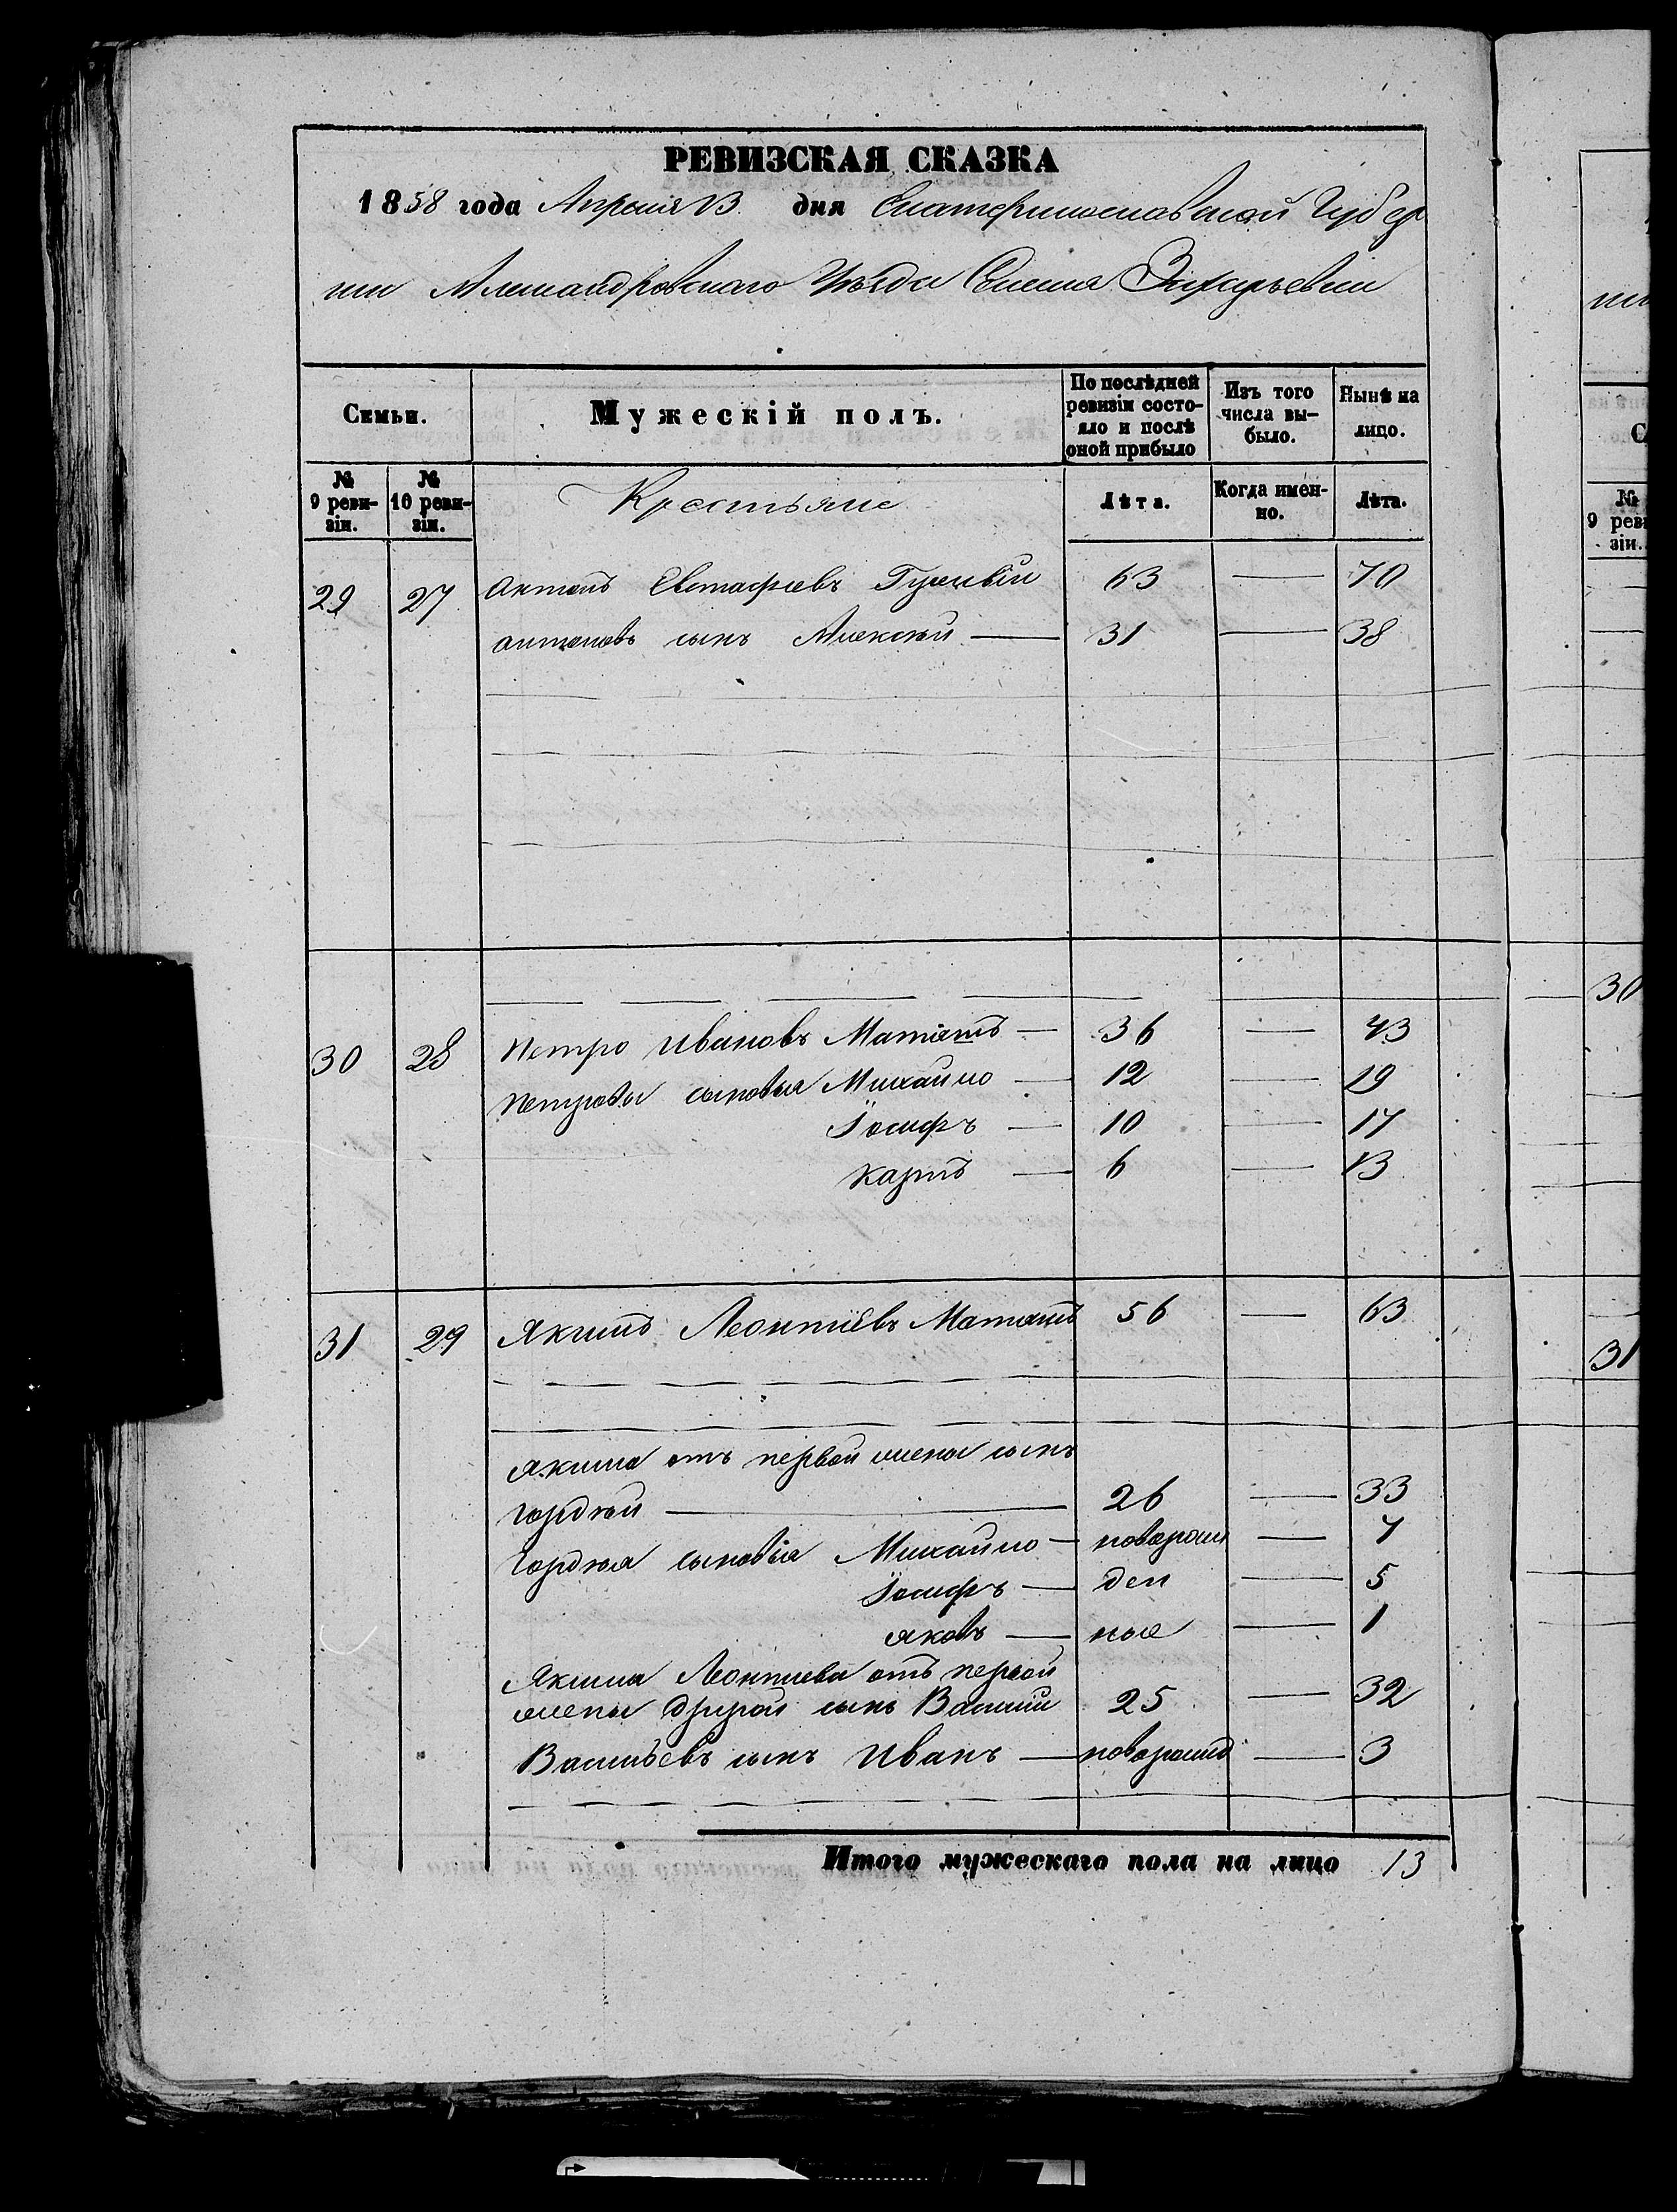 РЕВИЗСКАЯ СКАЗКА
1858 года Апреля 13 дня Екатеринославской Губер
нии Александровскаго Уѣзда Селения Захарьевки
Симьи. Мужескій полъ. По послѣдней ревизіи состояло и послѣ оной прибыло Изъ того числа выбыло. Нынѣ на лицо.
№ 9 ревизіи. № 10 ревизіи. Крестьяне Лѣта. Когда именно. Лѣта.
29 27 Антонъ Евстафіевъ 63 — 70
антоновъ сынъ Алексѣй — 31 — 38
30 28 Петро Ивановъ — 36 — 43
Петровы сыновья Михайло — 12 — 19
Іосифъ — 10 — 17
Карпъ — 6 — 13
31 29 Якимъ Леонтіевъ 56 — 63
Якима отъ первой жены сынъ
Гордѣй — 26 — 33
Гордѣя сыновія Михайло — новорож — 7
Іосифъ — ден — 5
Яковъ — ные — 1
Якима Леонтиева отъ первой
жены другой сынъ Василий 25 — 32
Васильевъ сынъ Иванъ — новорожд — 3
Итого мужескаго пола на лицо 13
ни
С
№
9 реви
зіи.
30
31